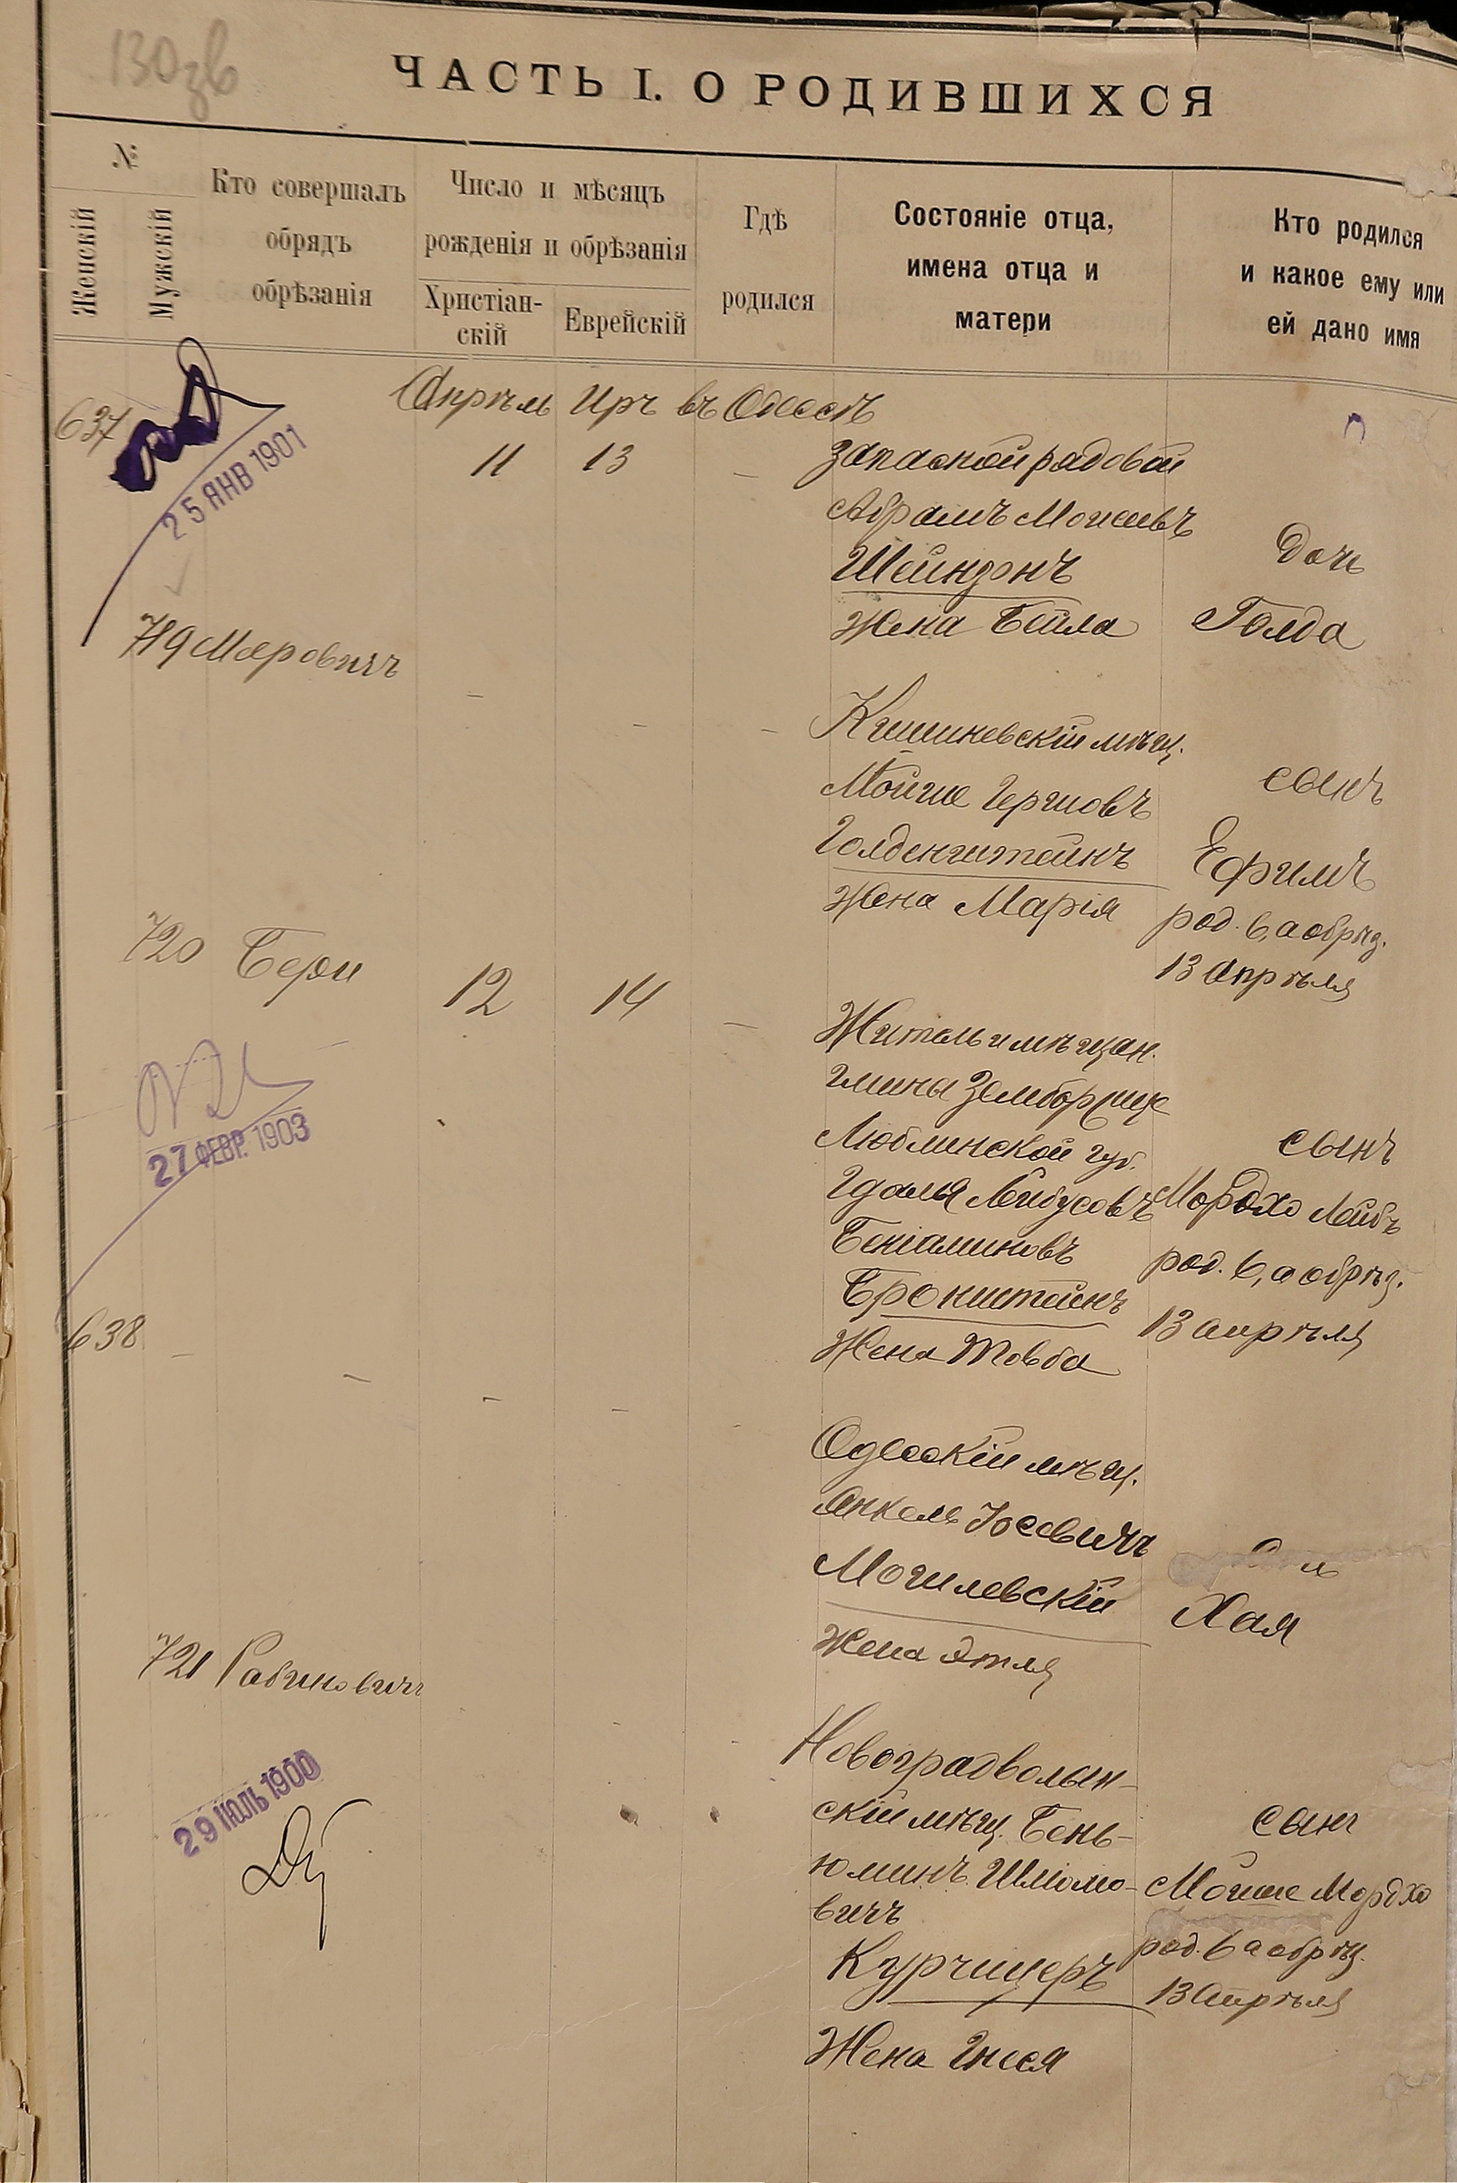 130 зв
ЧАСТЬ I. О РОДИВШИХСЯ
№
Женскій
Мужскій
Кто совершалъ
обрядъ
обрѣзанія
Число и мѣсяцъ
рожденія и обрѣзанія
Христіан-
скій
Еврейскій
Гдѣ
родился
Состояніе отца,
имена отца и
матери
Кто родился
и какое ему или
ей дано имя
Апрѣль Иръ въ Одессѣ
637
25 ЯНВ 1901
11 13 –
Запасной рядовой
Абрамъ Моисеевъ
Шейнзонъ
Жена Бейла
Дочь
Голда
719 Меровичъ
– – –
Кишиневскій мѣщ.
Мойше Гершовъ
Голденштейнъ
Жена Марія
сынъ
Ефимъ
род. 6, а обрѣз.
13 Апрѣля
720 Бери
12 14 –
27 ФЕВР. 1903
Житель и мѣщан.
гмины Земборжице
Люблинской губ.
Гдалья Лейбусовъ
Беніаминовъ
Бронштейнъ
Жена Товба
сынъ
Мордхо Лейбъ
род. 6, а обрѣз.
13 апрѣля
638 – – – –
Одесскій мѣщ.
Янкель Іосевичъ
Могилевскій
Жена Этля
Хая
721 Рабиновичъ
29 ІЮЛЬ 1900
Новоградволын-
скій мѣщ. Бень-
юминъ Шлiомо-
вичъ
Курчицеръ
Жена Гнеся
сынъ
Мойше Мордхо
род. 6 а обрѣз.
13 Апрѣля